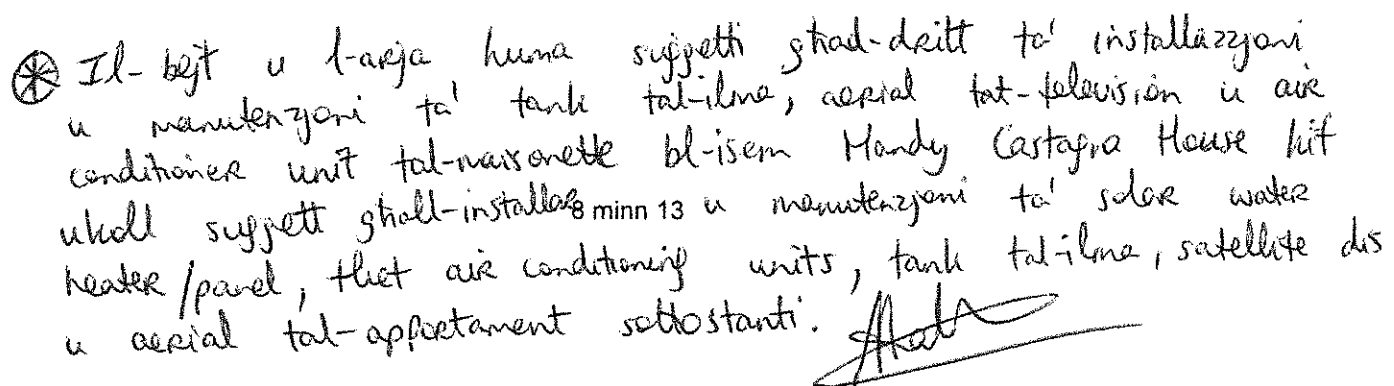 Il-bejt u l-arja huma suġġetti għad-dritt ta' installazzjoni
u manutenzjoni ta' tank tal-ilma, aerial tat-television u air
conditioner unit tal-maisonette bl-isem Mandy Castagna House kif
ukoll suġġett għall-installa 8 minn 13 u manutenzjoni ta' solar water
heater/panel, tliet air conditioning units, tank tal-ilma, satellite dis
u aerial tal-appartament sottostanti.